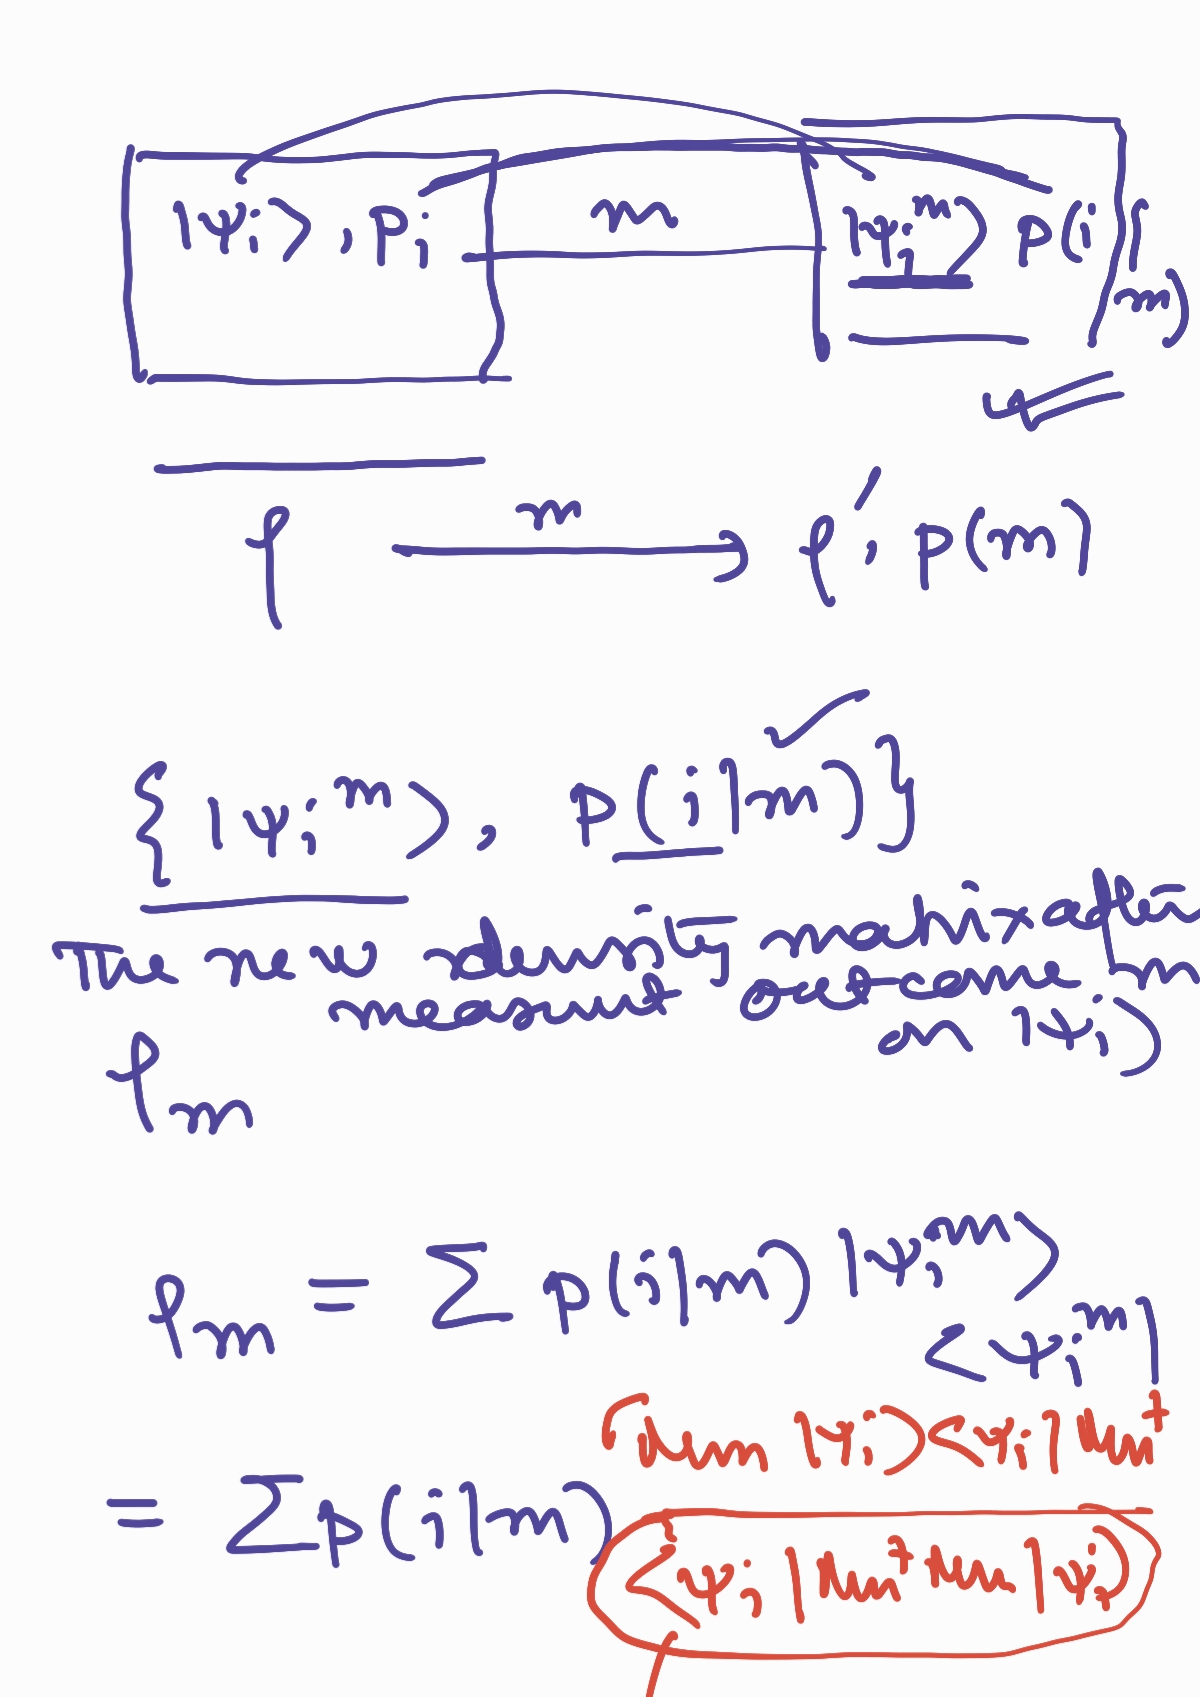 |ψi⟩, pi m |ψi^m⟩ p(i|m)
ρ m → ρ', p(m)
{ |ψi^m⟩, p(i|m) }
The new density matrix after
measurmt outcome m
on |ψi⟩
ρm
ρm = Σ p(i|m) |ψi^m⟩
⟨ψi^m|
Mm |ψi⟩⟨ψi| Mm†
= Σ p(i|m)
⟨ψi | Mm† Mm | ψi⟩